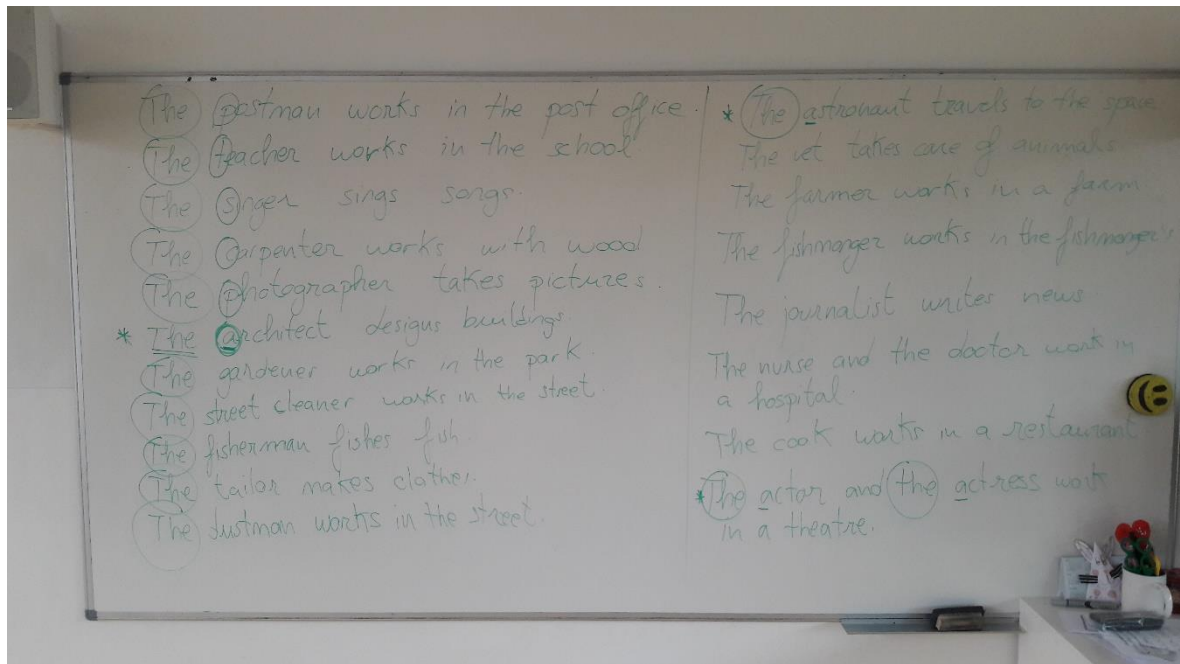 The postman works in the post office.
The teacher works in the school
The singer sings songs.
The carpenter works with wood
The photographer takes pictures.
* The architect designs buildings.
The gardener works in the park.
The street cleaner works in the street.
The fisherman fishes fish.
The tailor makes clothes.
The dustman works in the street.
* The astronaut travels to the space
The vet takes care of animals
The farmer works in a farm
The fishmonger works in the fishmonger's
The journalist writes news.
The nurse and the doctor work in
a hospital.
The cook works in a restaurant
* The actor and the actress work
in a theatre.